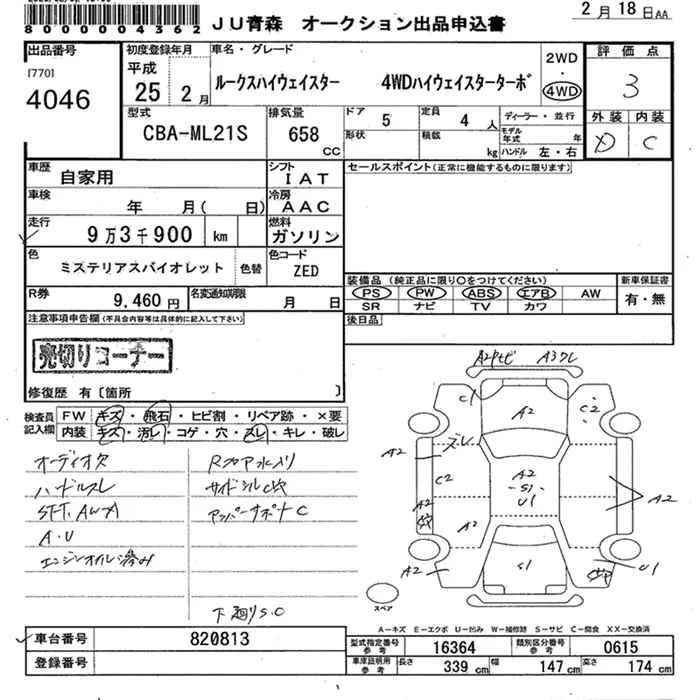 8000004362
JU青森 オークション出品申込書
2月18日AA
出品番号
[770]
4046
初度登録年月
平成
25 2月
車名・グレード
ルークスハイウェイスター 4WDハイウェイスターターボ
2WD
・
4WD
評価点
3
外装 内装
D C
型式
CBA-ML21S
排気量
658
CC
ドア
5
定員
4 人
ディーラー・並行
形状
積載
kg
モデル年式 年
ハンドル 左・右
車歴
自家用
シフト
IAT
セールスポイント(正常に機能するものに限ります)
車検
年 月( 日)
冷房
AAC
走行
9万3千900 km
燃料
ガソリン
色
ミステリアスバイオレット
色替
色コード
ZED
装備品 (純正品に限り○をつけてください)
新車保証書
PS PW ABS エアB AW
有・無
SR ナビ TV カワ
R券
9,460円
名変通知期限
月 日
後日品
注意事項申告欄(不具合内容等は具体的に記入して下さい)
売切りコーナー
修復歴 有〔箇所 〕
検査員記入欄
FW キズ・飛石・ヒビ割・リペア跡・×要
内装 キズ・汚レ・コゲ・穴・スレ・キレ・破レ
オーディオ欠
ハンドルスレ
A・U
サイドシルC穴
アッパーサポートC
下廻りS.C
A3クレ
C1
A2
C2
A2
ズレ
C2
A2
S1
U1
A2
A2
A2
A2
S1
U1
スペア
A-キズ E-エクボ U-凹み W-補修跡 S-サビ C-腐食 XX-交換済
車台番号
820813
登録番号
型式指定番号
参考
16364
類別区分番号
参考
0615
車庫証明用
参考
長さ
339 cm
幅
147 cm
高さ
174 cm